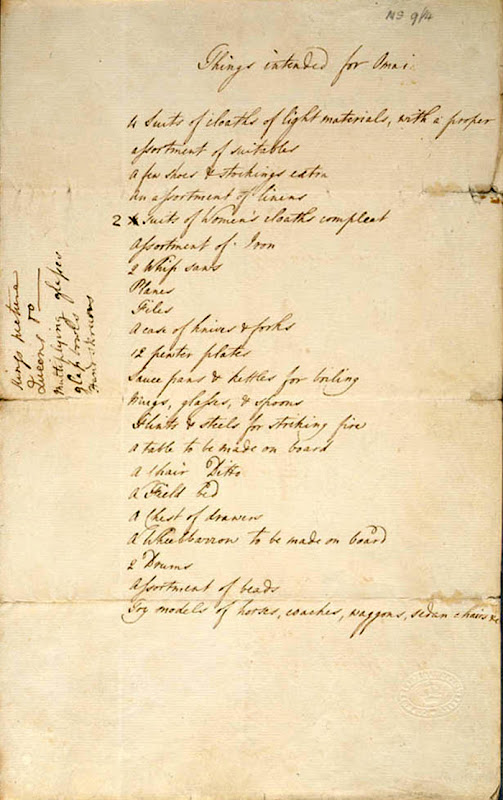 MS 9/14
Things intended for Omai
4 Suits of cloaths of light materials, with a proper
assortment of suitables
a few shoes & stockings extra
an assortment of linens
2 Suits of Women's cloaths compleat
Assortment of Iron
2 Whip saws
Planes
Files
A case of knives & forks
12 pewter plates
Sauce pans & kettles for boiling
Mugs, glasses, & spoons
Flints & steels for striking fire
A table to be made on board
A Chair Ditto
A Field bed
A Chest of drawers
A Wheelbarrow to be made on board
2 Drums
Assortment of beads
Toy models of horses, coaches, waggons, sedan chairs &c
Kings picture
&
Queens Do
Multiplying glasses
glass bowls